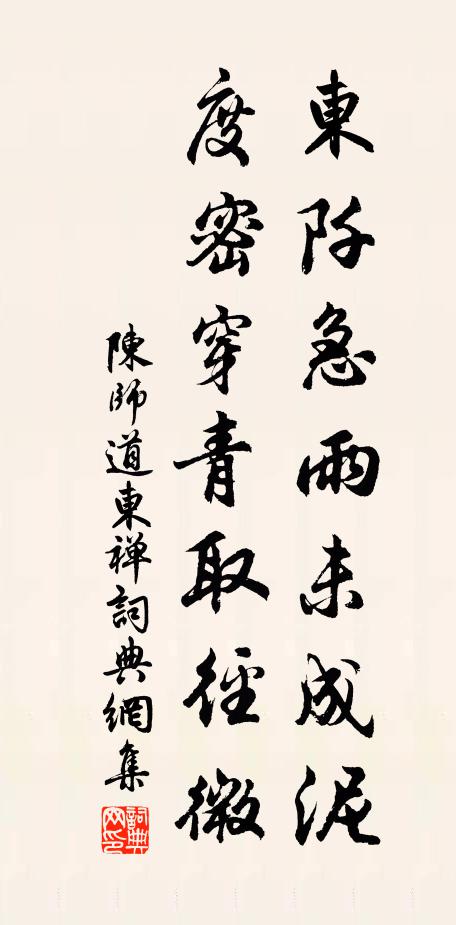 東阡急雨未成泥
度密穿青取徑微
陳師道東禅詞典網集
詞典網印